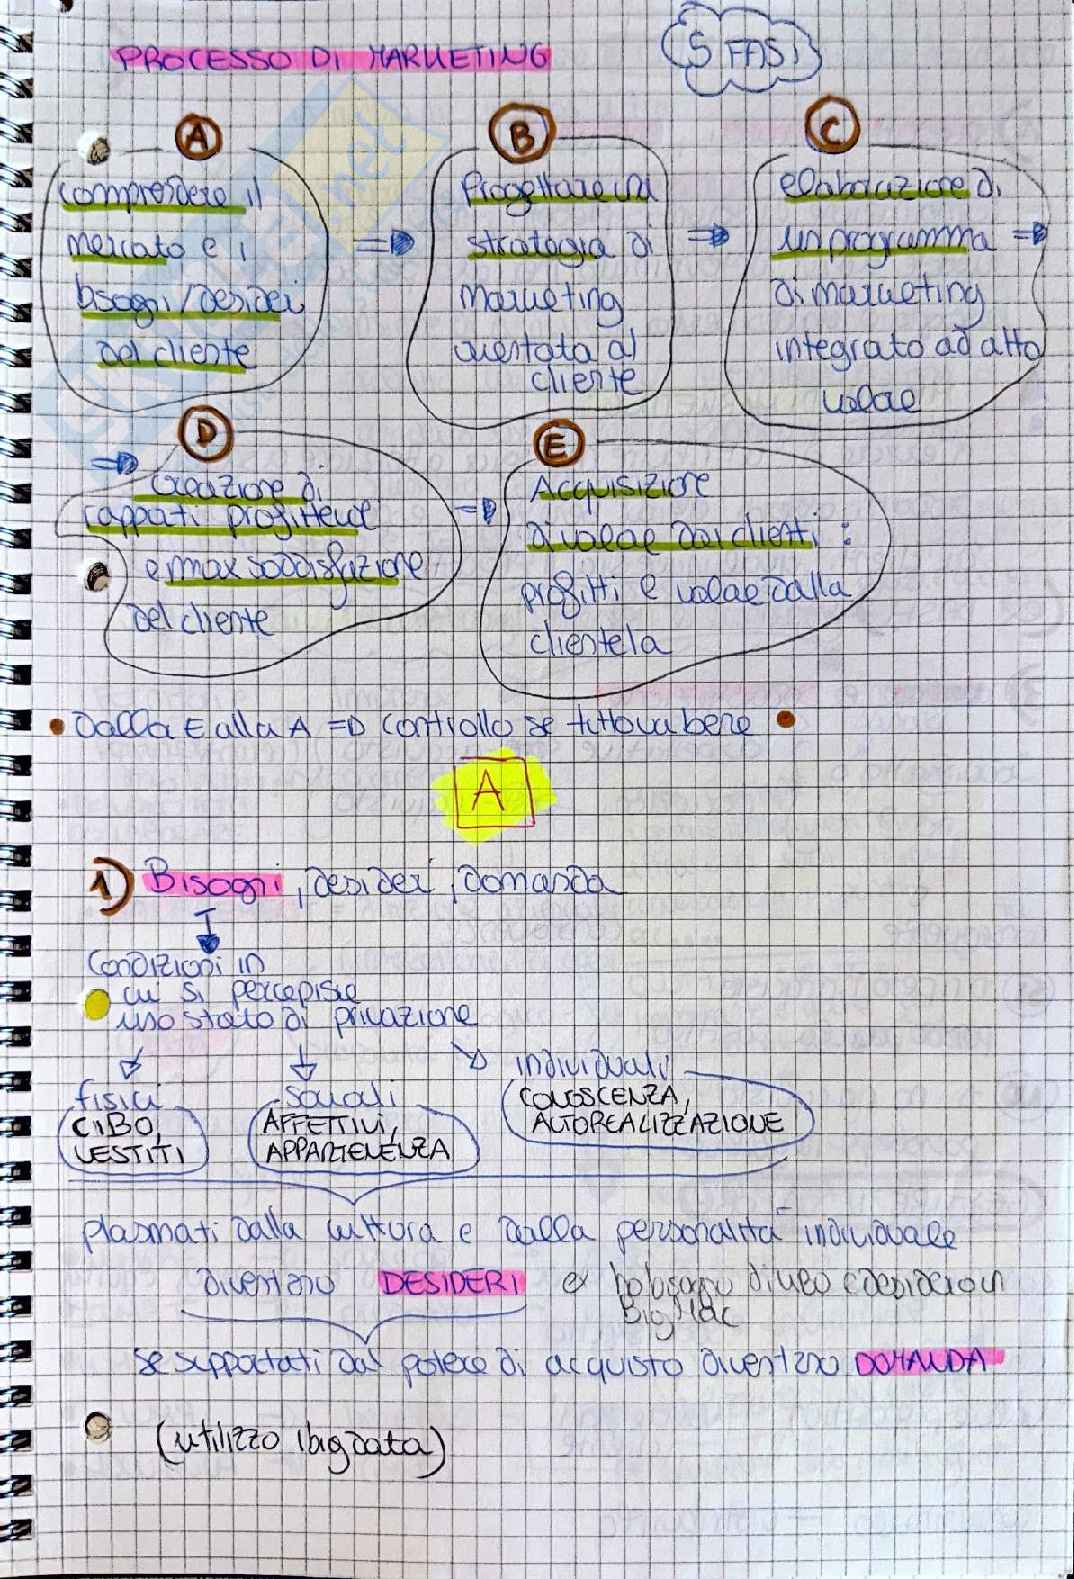 PROCESSO DI MARKETING
5 FASI
A
comprendere il
mercato e i
bisogni/desideri
del cliente
B
Progettare una
strategia di
marketing
orientata al
cliente
C
elaborazione di
un programma
di marketing
integrato ad alto
valore
D
Creazione di
rapporti profittevoli
e max soddisfazione
del cliente
E
Acquisizione
di valore dai clienti:
profitti e valore dalla
clientela
• Dalla E alla A => controllo se tutto va bene •
A
1) Bisogni, desideri, domanda
Condizioni in
cui si percepisce
uno stato di privazione
fisici
CIBO,
VESTITI
sociali
AFFETTIVI,
APPARTENENZA
individuali
CONOSCENZA,
AUTOREALIZZAZIONE
plasmati dalla cultura e dalla personalità individuale
diventano DESIDERI ex ho bisogno di cibo e desidero un
Big Mac
se supportati dal potere di acquisto diventano DOMANDA
(utilizzo big data)